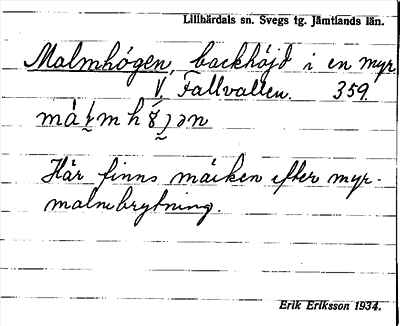 Lillhärdals sn. Svegs tg. Jämtlands län.
Malmhögen, backhöjd i en myr
V. Fallvallen. 359.
Här finns märken efter myr-
malmbrytning.
Erik Eriksson 1934.